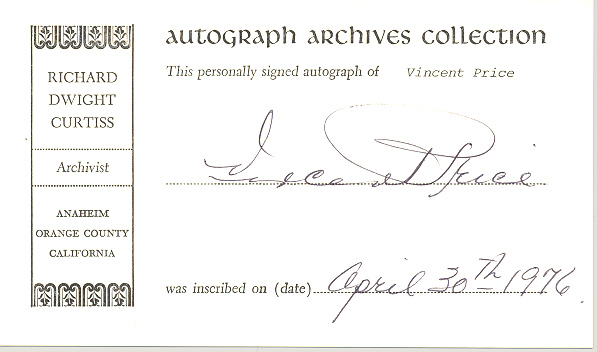 AUTOGRAPH ARCHIVES COLLECTION
RICHARD
DWIGHT
CURTISS
Archivist
ANAHEIM
ORANGE COUNTY
CALIFORNIA
This personally signed autograph of Vincent Price
Vincent Price
was inscribed on (date) April 30th 1976.